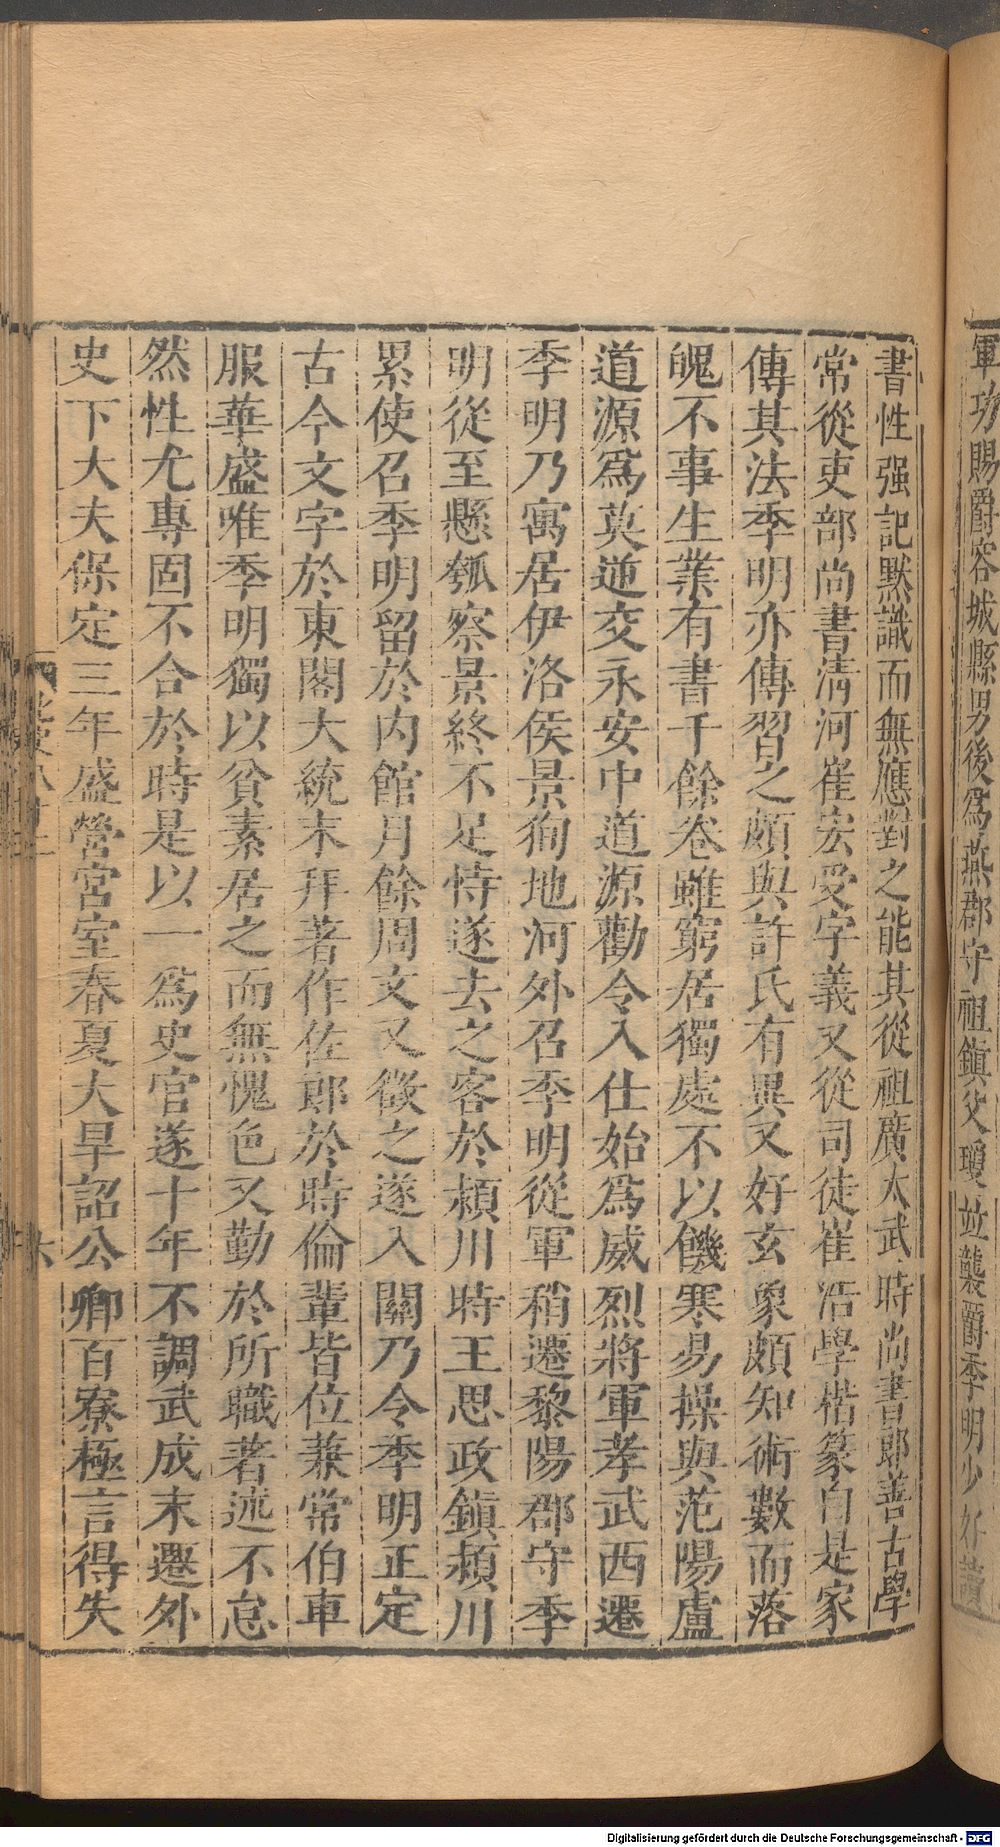 軍功賜爵容城縣男後為燕郡守祖鎮父瓊並襲爵季明少好讀
書性强記默識而無應對之能其從祖廣太武時尚書郎善古學
常從吏部尚書清河崔宏受字義又從司徒崔浩學楷篆自是家
傳其法季明亦傳習之頗與許氏有異又好玄象頗知術數而落
魄不事生業有書千餘卷雖窮居獨處不以饑寒易操與范陽盧
道源爲莫逆交永安中道源勸令入仕始爲威烈將軍孝武西遷
季明乃寓居伊洛侯景狥地河外召季明從軍稍遷黎陽郡守季
明從至懸瓠察景終不足恃遂去之客於潁川時王思政鎮潁川
累使召季明留於内館月餘周文又徵之遂入關乃令季明正定
古今文字於東閣大統末拜著作佐郎於時倫輩皆位兼常伯車
服華盛唯季明獨以貧素居之而無愧色又勤於所職著述不怠
然性尤專固不合於時是以一爲史官遂十年不調武成末遷外
史下大夫保定三年盛營宮室春夏大旱詔公卿百寮極言得失
六
Digitalisierung gefördert durch die Deutsche Forschungsgemeinschaft - DFG